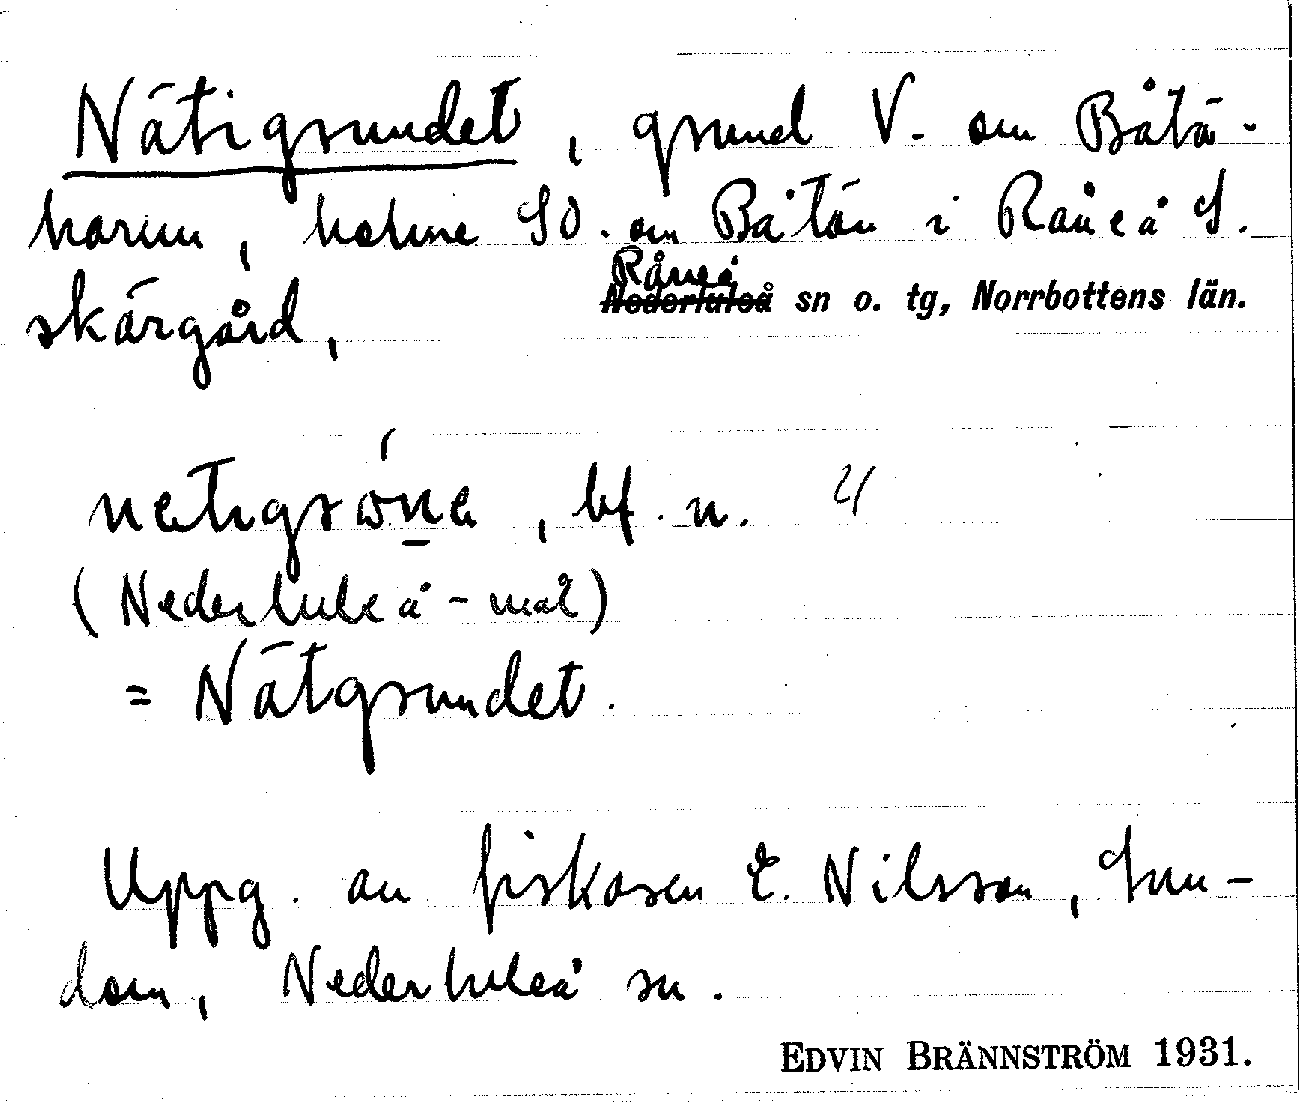 Nätigrundet, grund V. om Båtö-
harun, holme SO. om Båtön i Råneå S.
Råneå
Nederluleå sn o. tg, Norrbottens län.
skärgård,
bf. n.
(Nederluleå-mål)
= Nätgrundet.
Uppg. av fiskaren E. Nilsson, Sun-
dom, Nederluleå sn.
EDVIN BRÄNNSTRÖM 1931.